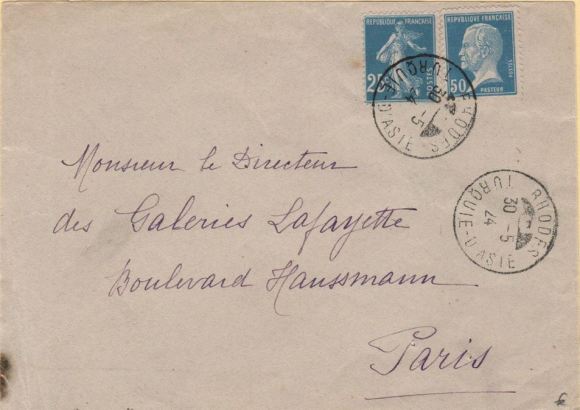 REPUBLIQUE FRANÇAISE
25c
POSTES
REPVBLIQVE FRANÇAISE
50c
POSTES
PASTEUR
RHODES
30 -5
24
TURQUIE-D'ASIE
RHODES
30 -5
24
TURQUIE-D'ASIE
Monsieur le Directeur
des Galeries Lafayette
Boulevard Haussmann
Paris